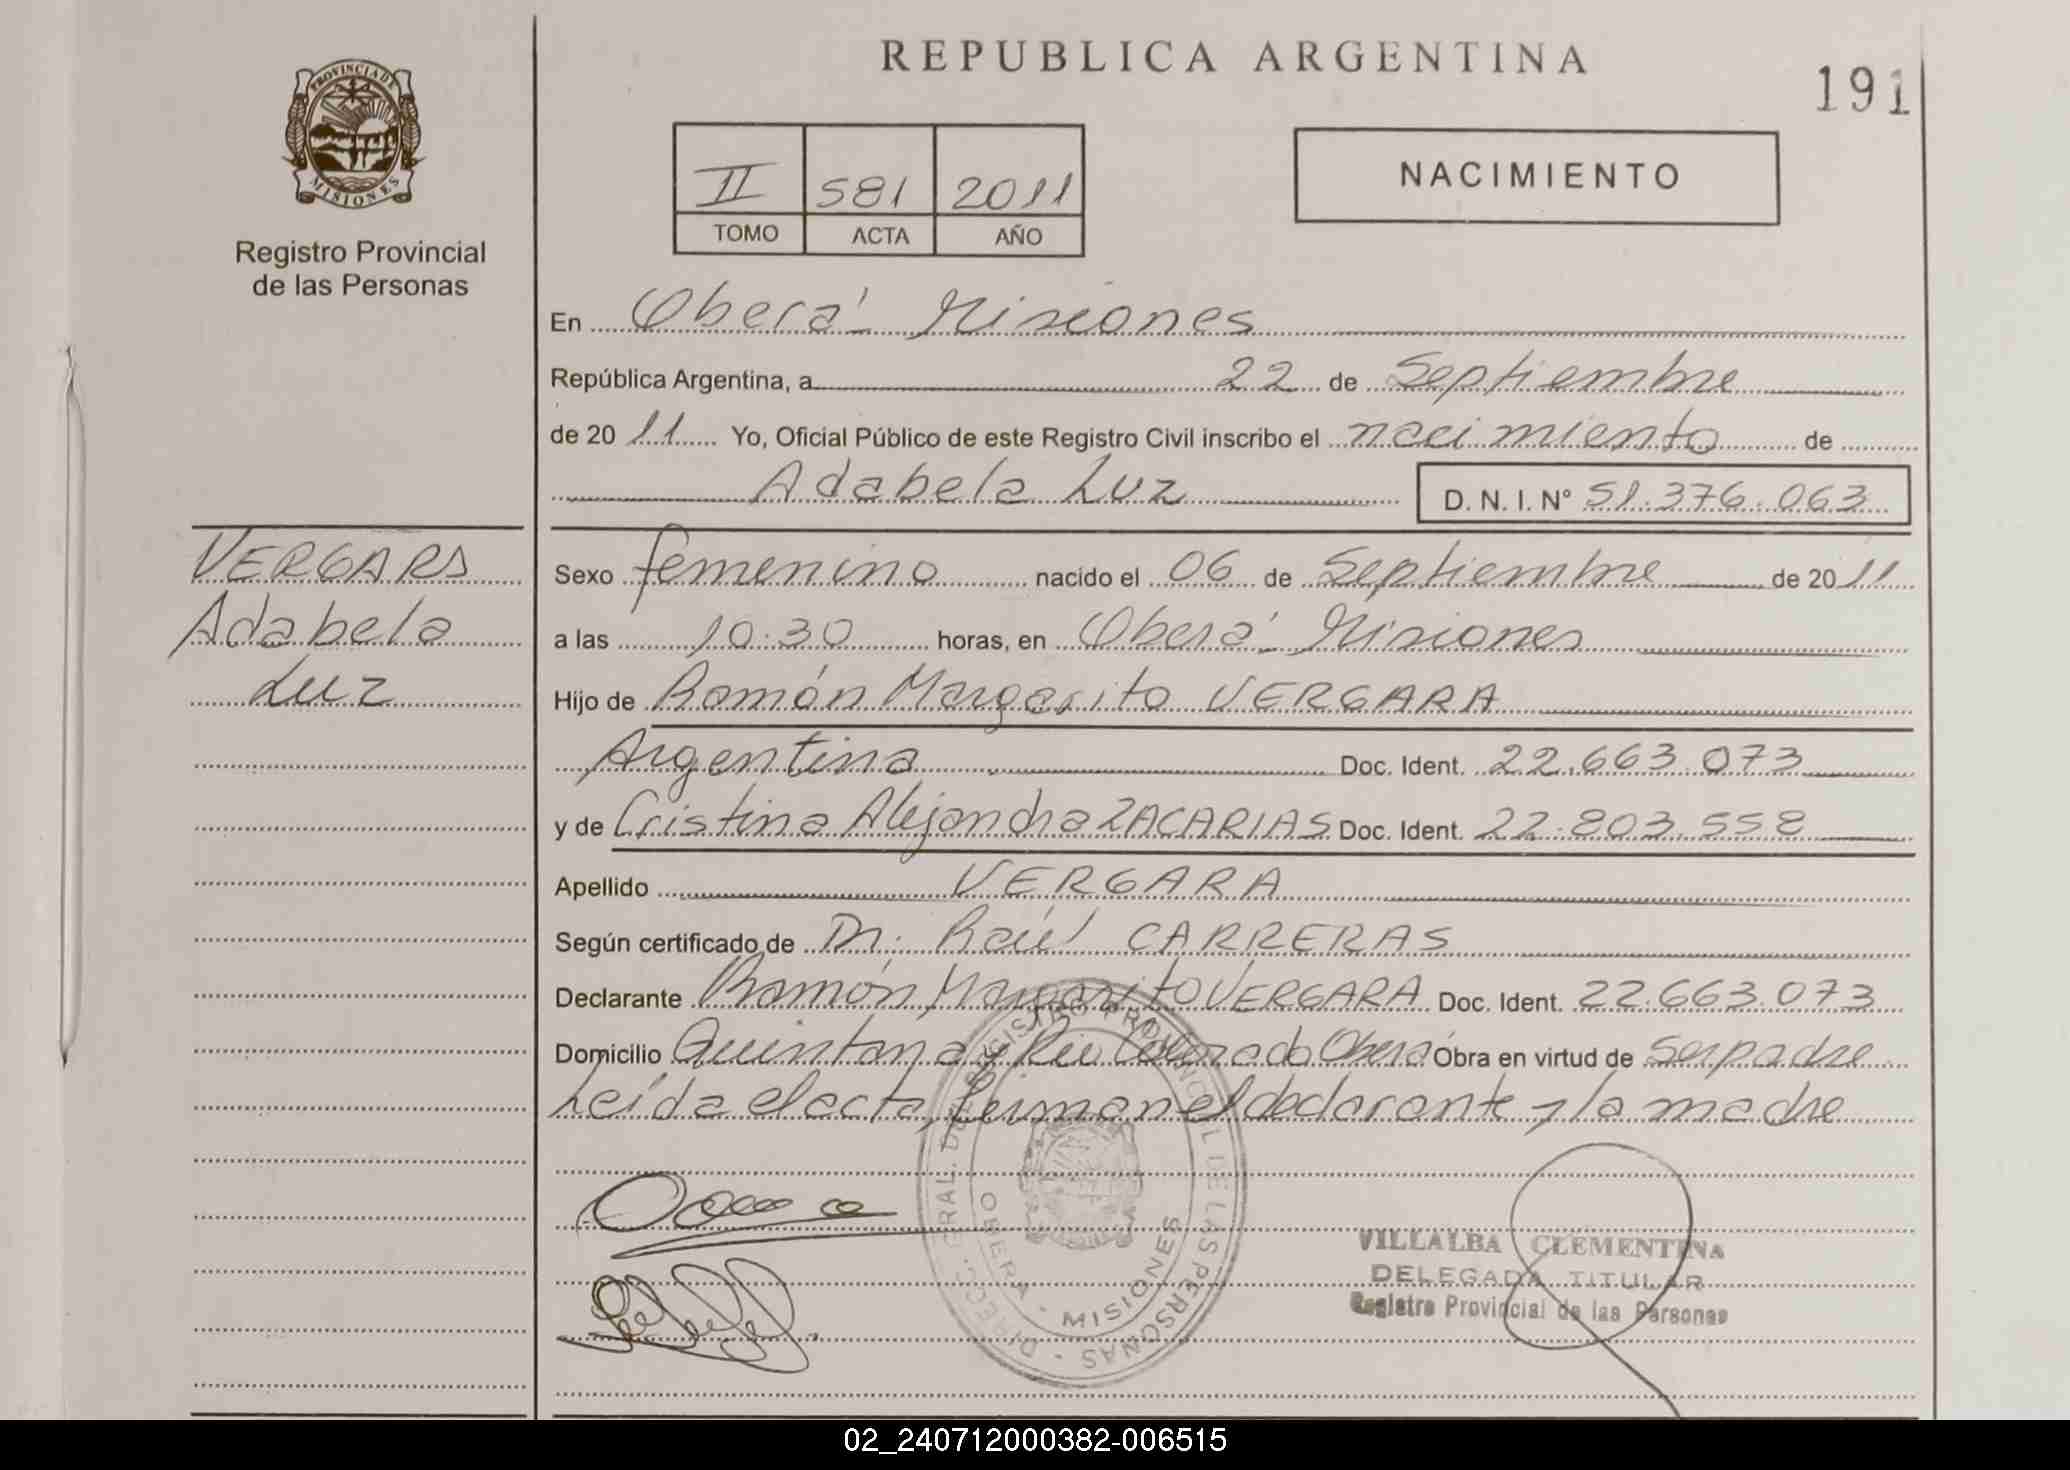 REPUBLICA ARGENTINA
191
PROVINCIA DE
MISIONES
Registro Provincial
de las Personas
II 581 2011
TOMO ACTA AÑO
NACIMIENTO
En Oberá Misiones
República Argentina, a 22 de Septiembre
de 2011 Yo, Oficial Público de este Registro Civil inscribo el nacimiento de
Adabela Luz D. N. I. Nº 51.376.063
VERGARA
Adabela
Luz
Sexo femenino nacido el 06 de Septiembre de 2011
a las 10:30 horas, en Oberá Misiones
Hijo de Ramón Margarito VERGARA
Argentina Doc. Ident. 22.663.073
y de Cristina Alejandra ZACARIAS Doc. Ident. 22.803.558
Apellido VERGARA
Según certificado de Dr. Raúl CARRERAS
Declarante Ramón Margarito VERGARA Doc. Ident. 22.663.073
Domicilio Quintana y Rio Colorado Oberá Obra en virtud de ser padre
Leída el acta, firman el declarante y la madre
DIRECC. GRAL. DEL REGISTRO PROVINCIAL DE LAS PERSONAS
OBERA - MISIONES
VILLALBA CLEMENTINA
DELEGADA TITULAR
Registro Provincial de las Personas
02_240712000382-006515